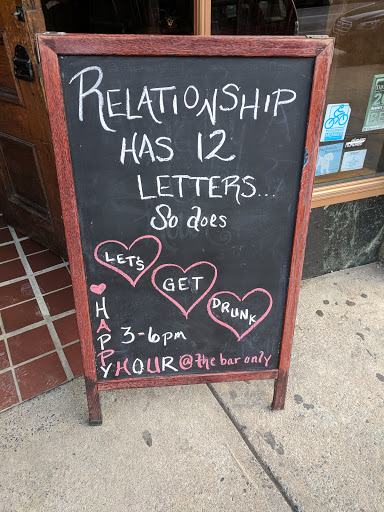 RELATIONSHIP
HAS 12
LETTERS...
So does
LET'S
GET
DRUNK
3-6pm
HAPPY HOUR @ the bar only